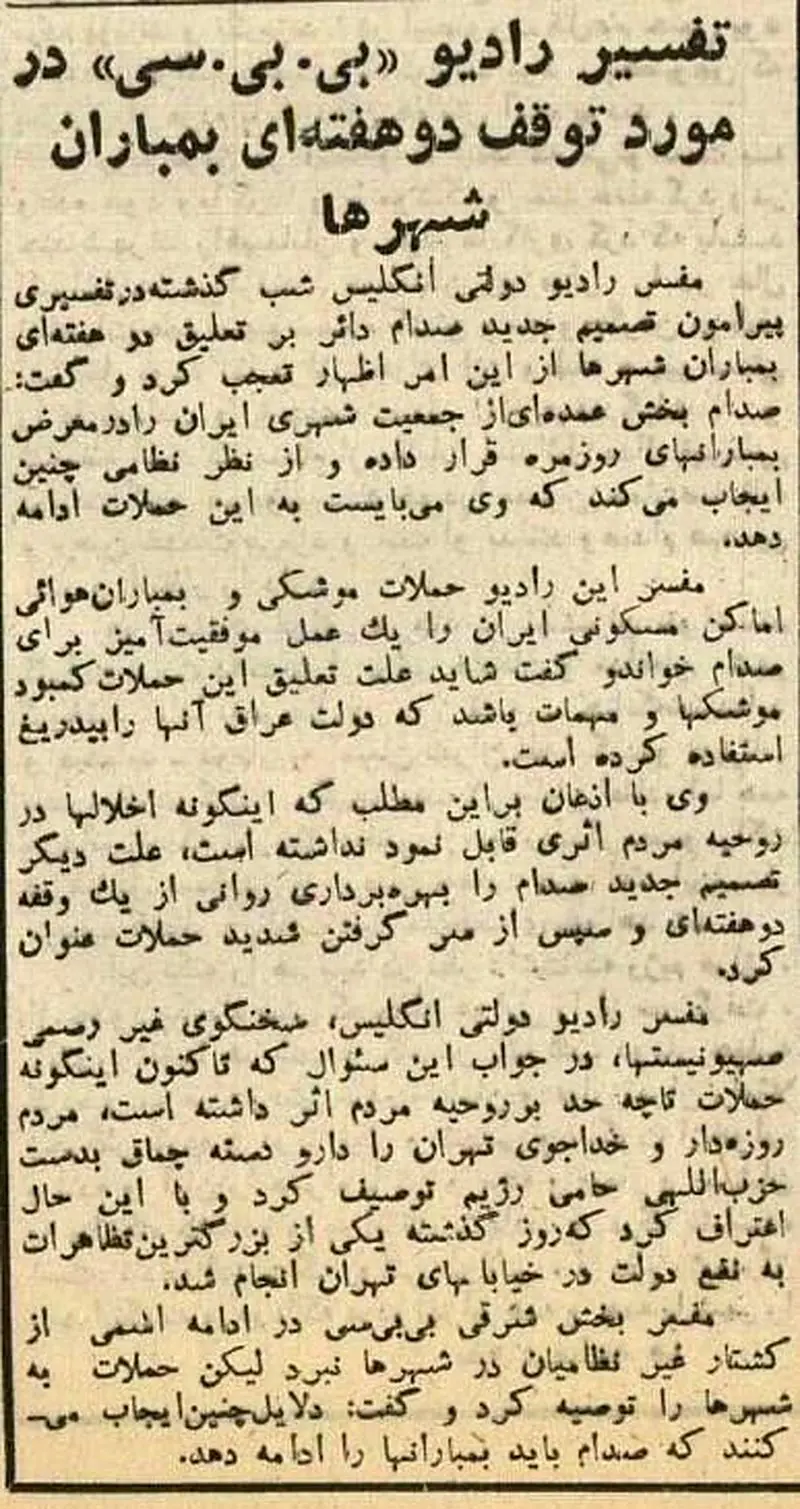 تفسیر رادیو «بی.بی.سی» در
مورد توقف دوهفته‌ای بمباران
شهرها
مفسر رادیو دولتی انگلیس شب گذشته‌درتفسیری
پیرامون تصمیم جدید صدام دائر بر تعلیق دو هفته‌ای
بمباران شهرها از این امر اظهار تعجب کرد و گفت:
صدام بخش عمده‌ای‌از جمعیت شهری ایران رادرمعرض
بمبارانهای روزمره قرار داده و از نظر نظامی چنین
ایجاب می‌کند که وی می‌بایست به این حملات ادامه
دهد.
مفسر این رادیو حملات موشکی و بمباران‌هوائی
اماکن مسکونی ایران را یك عمل موفقیت‌آمیز برای
صدام خواندو گفت شاید علت تعلیق این حملات‌کمبود
موشکها و مهمات باشد که دولت عراق آنها رابیدریغ
استفاده کرده است.
وی با اذعان براین مطلب که اینگونه اخلالها در
روحیه مردم اثری قابل نمود نداشته است، علت دیگر
تصمیم جدید صدام را بهره‌برداری روانی از یك وقفه
دوهفته‌ای و سپس از سر گرفتن شدید حملات عنوان
کرد.
مفسر رادیو دولتی انگلیس، سخنگوی غیر رسمی
صهیونیستها، در جواب این سئوال که تاکنون اینگونه
حملات تاچه حد برروحیه مردم اثر داشته است، مردم
روزه‌دار و خداجوی تهران را دارو دسته چماق بدست
حزب‌اللهی حامی رژیم توصیف کرد و با این حال
اعتراف کرد که‌روز گذشته یکی از بزرگترین‌تظاهرات
به نفع دولت در خیابا بهای تهران انجام شد.
مفسر بخش شرقی بی‌بی‌سی در ادامه اسمی از
کشتار غیر نظامیان در شهرها نبرد لیکن حملات به
شهرها را توصیه کرد و گفت: دلایل‌چنین‌ایجاب می‌ـ
کنند که صدام باید بمبارانها را ادامه دهد.